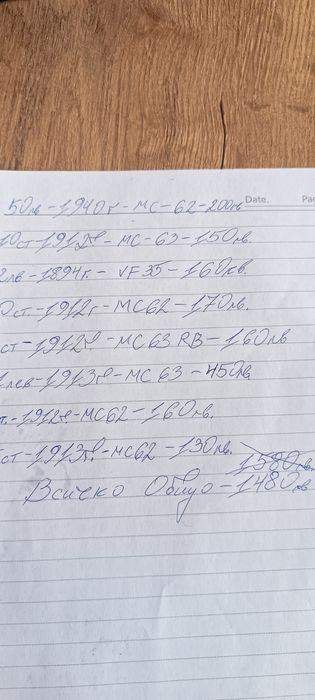 50лв-1940г-МС-62-200лв Date. Pa
10ст-1912г-МС-63-150лв.
2лв-1894г.-VF35-160лв.
0ст-1912г-МС62-170лв.
ст-1912г-МС63 RB-160лв
1лев-1913г-МС63-450лв
т.-1912г-МС62-160лв.
ст-1913г.-МС62-130лв.
1580лв.
Всичко Общо-1480лв